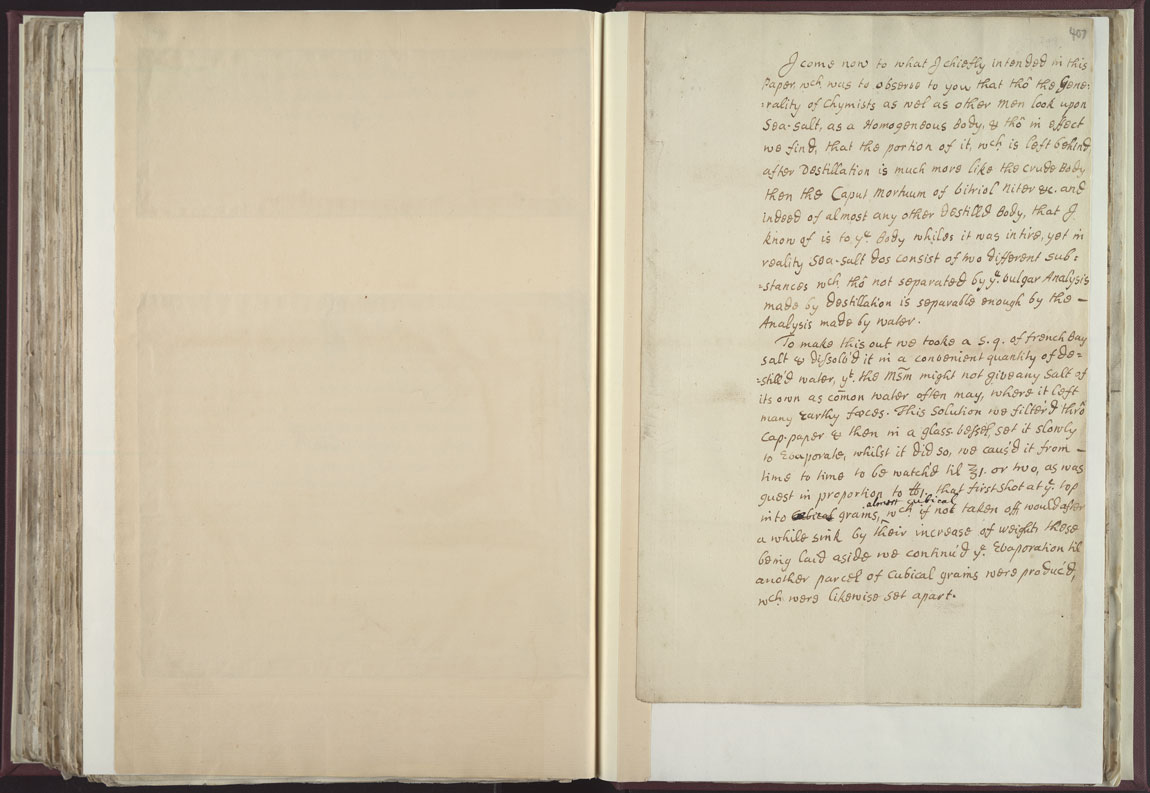 407
I come now to what I chiefly intended in this
Paper, wch was to observe to you that thô the Gene:
:rality of Chymists as wel as other men look upon
Sea-salt, as a Homogeneous Body, & thô in effect
we find, that the portion of it, wch is left behind
after Destillation is much more like the crude Body
then the Caput Mortuum of vitriol Niter &c. and
indeed of almost any other Destilld Body, that I
know of is to ye Body whiles it was intire, yet in
reality Sea-salt dos consist of two different Sub:
:stances wch thô not separated by ye vulgar Analysis
made by Destillation is separable enough by the —
Analysis made by water.
To make this out we tooke a s. q. of french Bay
salt & dissolv'd it in a convenient quantity of De=
=still'd water, yt the Msm̃ might not give any Salt of
its own as com̄on water often may, where it left
many Earthy fæces. This Solution we filter'd thrô
Cap-paper & then in a glass-vessel, set it slowly
to Evaporate, whilst it did so, we caus'd it from —
time to time to be watch'd til ℥1. or two, as was
guest in proportion to ℔1. that first shot at ye top
almost cubical
into Cubical grains, wch if not taken off would after
a while sink by their increase of weight, these
being laid aside we continu'd ye Evaporation til
another parcel of Cubical grains were produc'd,
wch were likewise set apart.